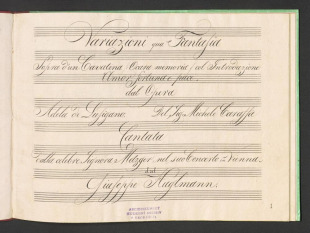 Variazioni qua Fantasia
sopra d'un Cavatina Ocara memoria, ed Introduzione
Amor, fortuna e pace
dal Opera
Adele di Lusignano. Del Sig. Michele Caraffa
Cantata
dalla celebre Signora Metzger nel suo Concerto a Vienna.
dal
Giuseppe Haglmann.
1